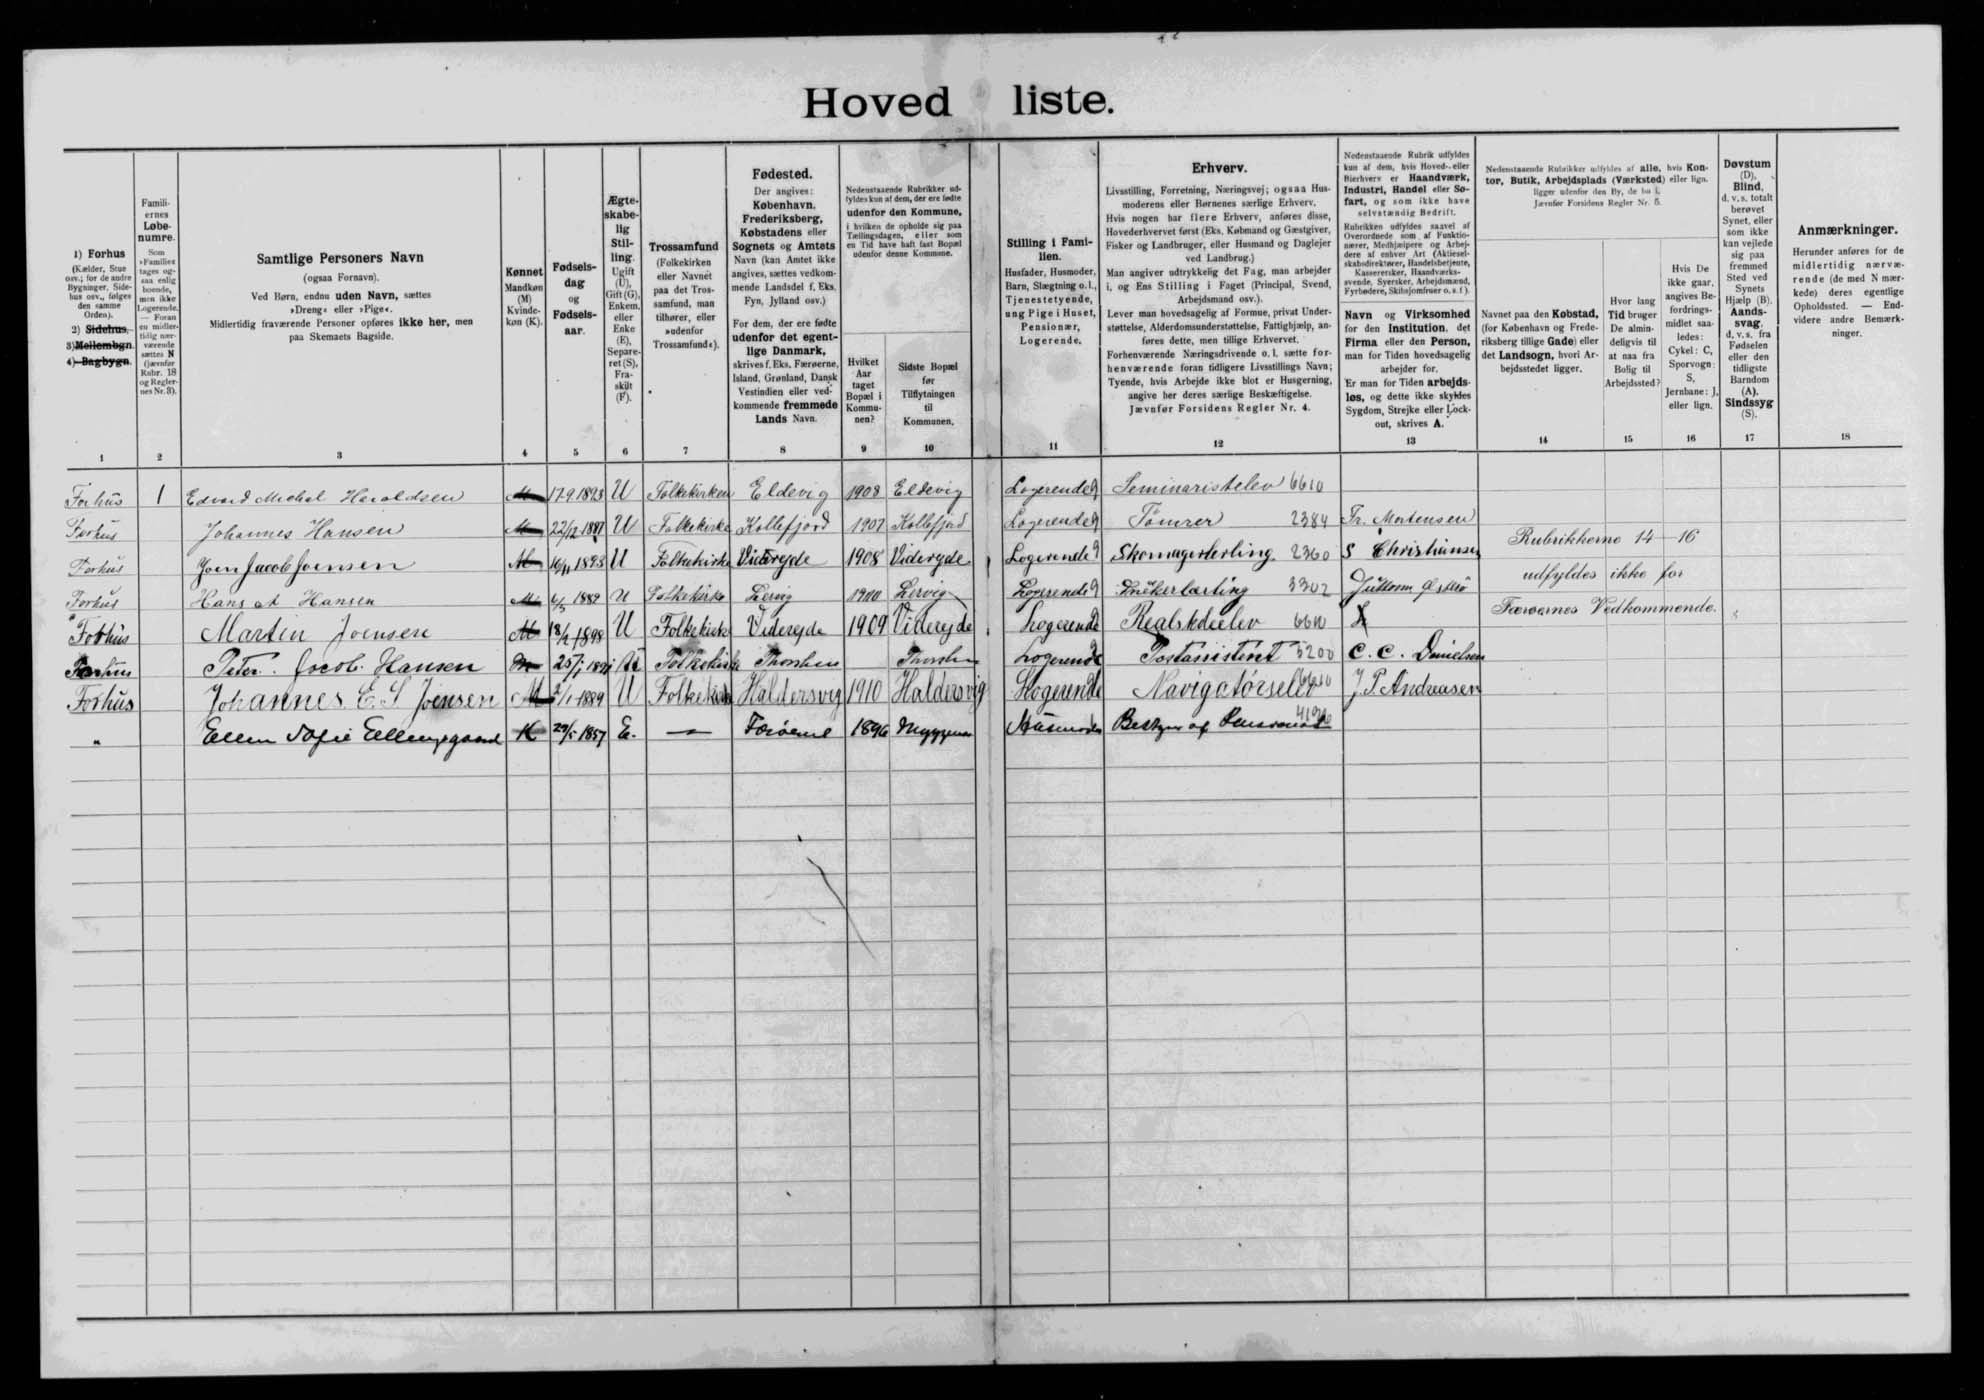 Hoved liste.
1) Forhus
(Kælder, Stue
osv.; for de andre
Bygninger, Side-
hus osv., følges
den samme
Orden).
2) Sidehus,
3) Mellembgn.
4) Bagbygn.
1
Famili-
ernes
Løbe-
numre.
Som
»Familie«
tages og-
saa enlig
boende,
men ikke
Logerende.
— Foran
en midler-
tidig nær-
værende
sættes N
(jævnfør
Rubr. 18
og Regler-
nes Nr. 3).
2
Samtlige Personers Navn
(ogsaa Fornavn).
Ved Børn, endnu uden Navn, sættes
»Dreng« eller »Pige«.
Midlertidig fraværende Personer opføres ikke her, men
paa Skemaets Bagside.
3
Kønnet
Mandkøn
(M)
Kvinde-
køn (K).
4
Fødsels-
dag
og
Fødsels-
aar.
5
Ægte-
skabe-
lig
Stil-
ling.
Ugift
(U),
Gift (G),
Enkem.
eller
Enke
(E),
Separe-
ret (S),
Fra-
skilt
(F).
6
Trossamfund
(Folkekirken
eller Navnet
paa det Tros-
samfund, man
tilhører, eller
»udenfor
Trossamfund«).
7
Fødested.
Der angives:
København,
Frederiksberg,
Købstadens eller
Sognets og Amtets
Navn (kan Amtet ikke
angives, sættes vedkom-
mende Landsdel f. Eks.
Fyn, Jylland osv.)
For dem, der ere fødte
udenfor det egent-
lige Danmark,
skrives f. Eks. Færøerne,
Island, Grønland, Dansk
Vestindien eller ved-
kommende fremmede
Lands Navn.
8
Nedenstaaende Rubrikker ud-
fyldes kun af dem, der ere fødte
udenfor den Kommune,
i hvilken de opholde sig paa
Tællingsdagen, eller som
en Tid have haft fast Bopæl
udenfor denne Kommune.
Hvilket
Aar
taget
Bopæl i
Kommu-
nen?
9
Sidste Bopæl
før
Tilflytningen
til
Kommunen.
10
Stilling i Fami-
lien.
Husfader, Husmoder,
Barn, Slægtning o. l.,
Tjenestetyende,
ung Pige i Huset,
Pensionær,
Logerende.
11
Erhverv.
Livsstilling, Forretning, Næringsvej; ogsaa Hus-
moderens eller Børnenes særlige Erhverv.
Hvis nogen har flere Erhverv, anføres disse,
Hovederhvervet først (Eks. Købmand og Gæstgiver,
Fisker og Landbruger, eller Husmand og Daglejer
ved Landbrug.)
Man angiver udtrykkelig det Fag, man arbejder
i, og Ens Stilling i Faget (Principal, Svend,
Arbejdsmand osv.).
Lever man hovedsagelig af Formue, privat Under-
støttelse, Alderdomsunderstøttelse, Fattighjælp, an-
føres dette, men tillige Erhvervet.
Forhenværende Næringsdrivende o. l. sætte for-
henværende foran tidligere Livsstillings Navn;
Tyende, hvis Arbejde ikke blot er Husgerning,
angive her deres særlige Beskæftigelse.
Jævnfør Forsidens Regler Nr. 4.
12
Nedenstaaende Rubrik udfyldes
kun af dem, hvis Hoved- eller
Bierhverv er Haandværk,
Industri, Handel eller Sø-
fart, og som ikke have
selvstændig Bedrift.
Rubrikken udfyldes saavel af
Overordnede som af Funktio-
nærer, Medhjælpere og Arbej-
dere af enhver Art (Aktiesel-
skabsdirektører, Handelsbetjente,
Kasserersker, Haandværks-
svende, Syersker, Arbejdsmænd,
Fyrbødere, Skibsjomfruer o. s. f.).
Navn og Virksomhed
for den Institution, det
Firma eller den Person,
man for Tiden hovedsagelig
arbejder for.
Er man for Tiden arbejds-
løs, og dette ikke skyldes
Sygdom, Strejke eller Lock-
out, skrives A.
13
Nedenstaaende Rubrikker udfyldes af alle, hvis Kon-
tor, Butik, Arbejdsplads (Værksted) eller lign.
ligger udenfor den By, de bo i.
Jævnfør Forsidens Regler Nr. 5.
Navnet paa den Købstad,
(for København og Frede-
riksberg tillige Gade) eller
det Landsogn, hvori Ar-
bejdsstedet ligger.
14
Hvor lang
Tid bruger
De almin-
deligvis til
at naa fra
Bolig til
Arbejdssted?
15
Hvis De
ikke gaar,
angives Be-
fordrings-
midlet saa-
ledes:
Cykel: C,
Sporvogn:
S,
Jernbane: J,
eller lign.
16
Døvstum
(D),
Blind,
d. v. s. totalt
berøvet
Synet, eller
som ikke
kan vejlede
sig paa
fremmed
Sted ved
Synets
Hjælp (B).
Aands-
svag,
d. v. s. fra
Fødselen
eller den
tidligste
Barndom
(A).
Sindssyg
(S).
17
Anmærkninger.
Herunder anføres for de
midlertidig nærvæ-
rende (de med N mær-
kede) deres egentlige
Opholdssted. — End-
videre andre Bemærk-
ninger.
18
Forhus 1 Edvard Michal Haraldsen M 17-9 1893 U Folkekirken Eldevig 1908 Eldevig Logerende Seminaristelev 6610
Forhus Johannes Hansen M 22/12 1887 U Folkekirke Kollefjord 1907 Kollefjord Logerende Tömrer 2384 Fr. Mortensen
Forhus Joen Jacob Joensen M 16/11 1893 U Folkekirke Viderejde 1908 Viderejde Logerende Skomagerlerling 2360 S Christiansen
Forhus Hans A Hansen M 6/5 1889 U Folkekirke Lervig 1910 Lervig Logerende 3302
Forhus Martin Joensen M 18/2 1898 U Folkekirke Viderejde 1909 Viderejde Logerende Realskoleelev 6610
Forhus Peter Jacob Hansen M 25/7 U Folkekirke Thorshavn Thorshavn Logerende Postassistent 5200 C. C. Danielsen
Forhus Johannes E. S. Joensen M 2/1 1889 U Folkekirken Haldersvig 1910 Haldersvig Logerende Navigatörselev 6610 J. P. Andreasen
" Ellen Sofie Ellingsgaard K 29/5 1857 E. — Færøerne 1896 Myggenæs Husmoder Bestyrer af
Rubrikkerne 14—16
udfyldes ikke for
Færøernes Vedkommende.